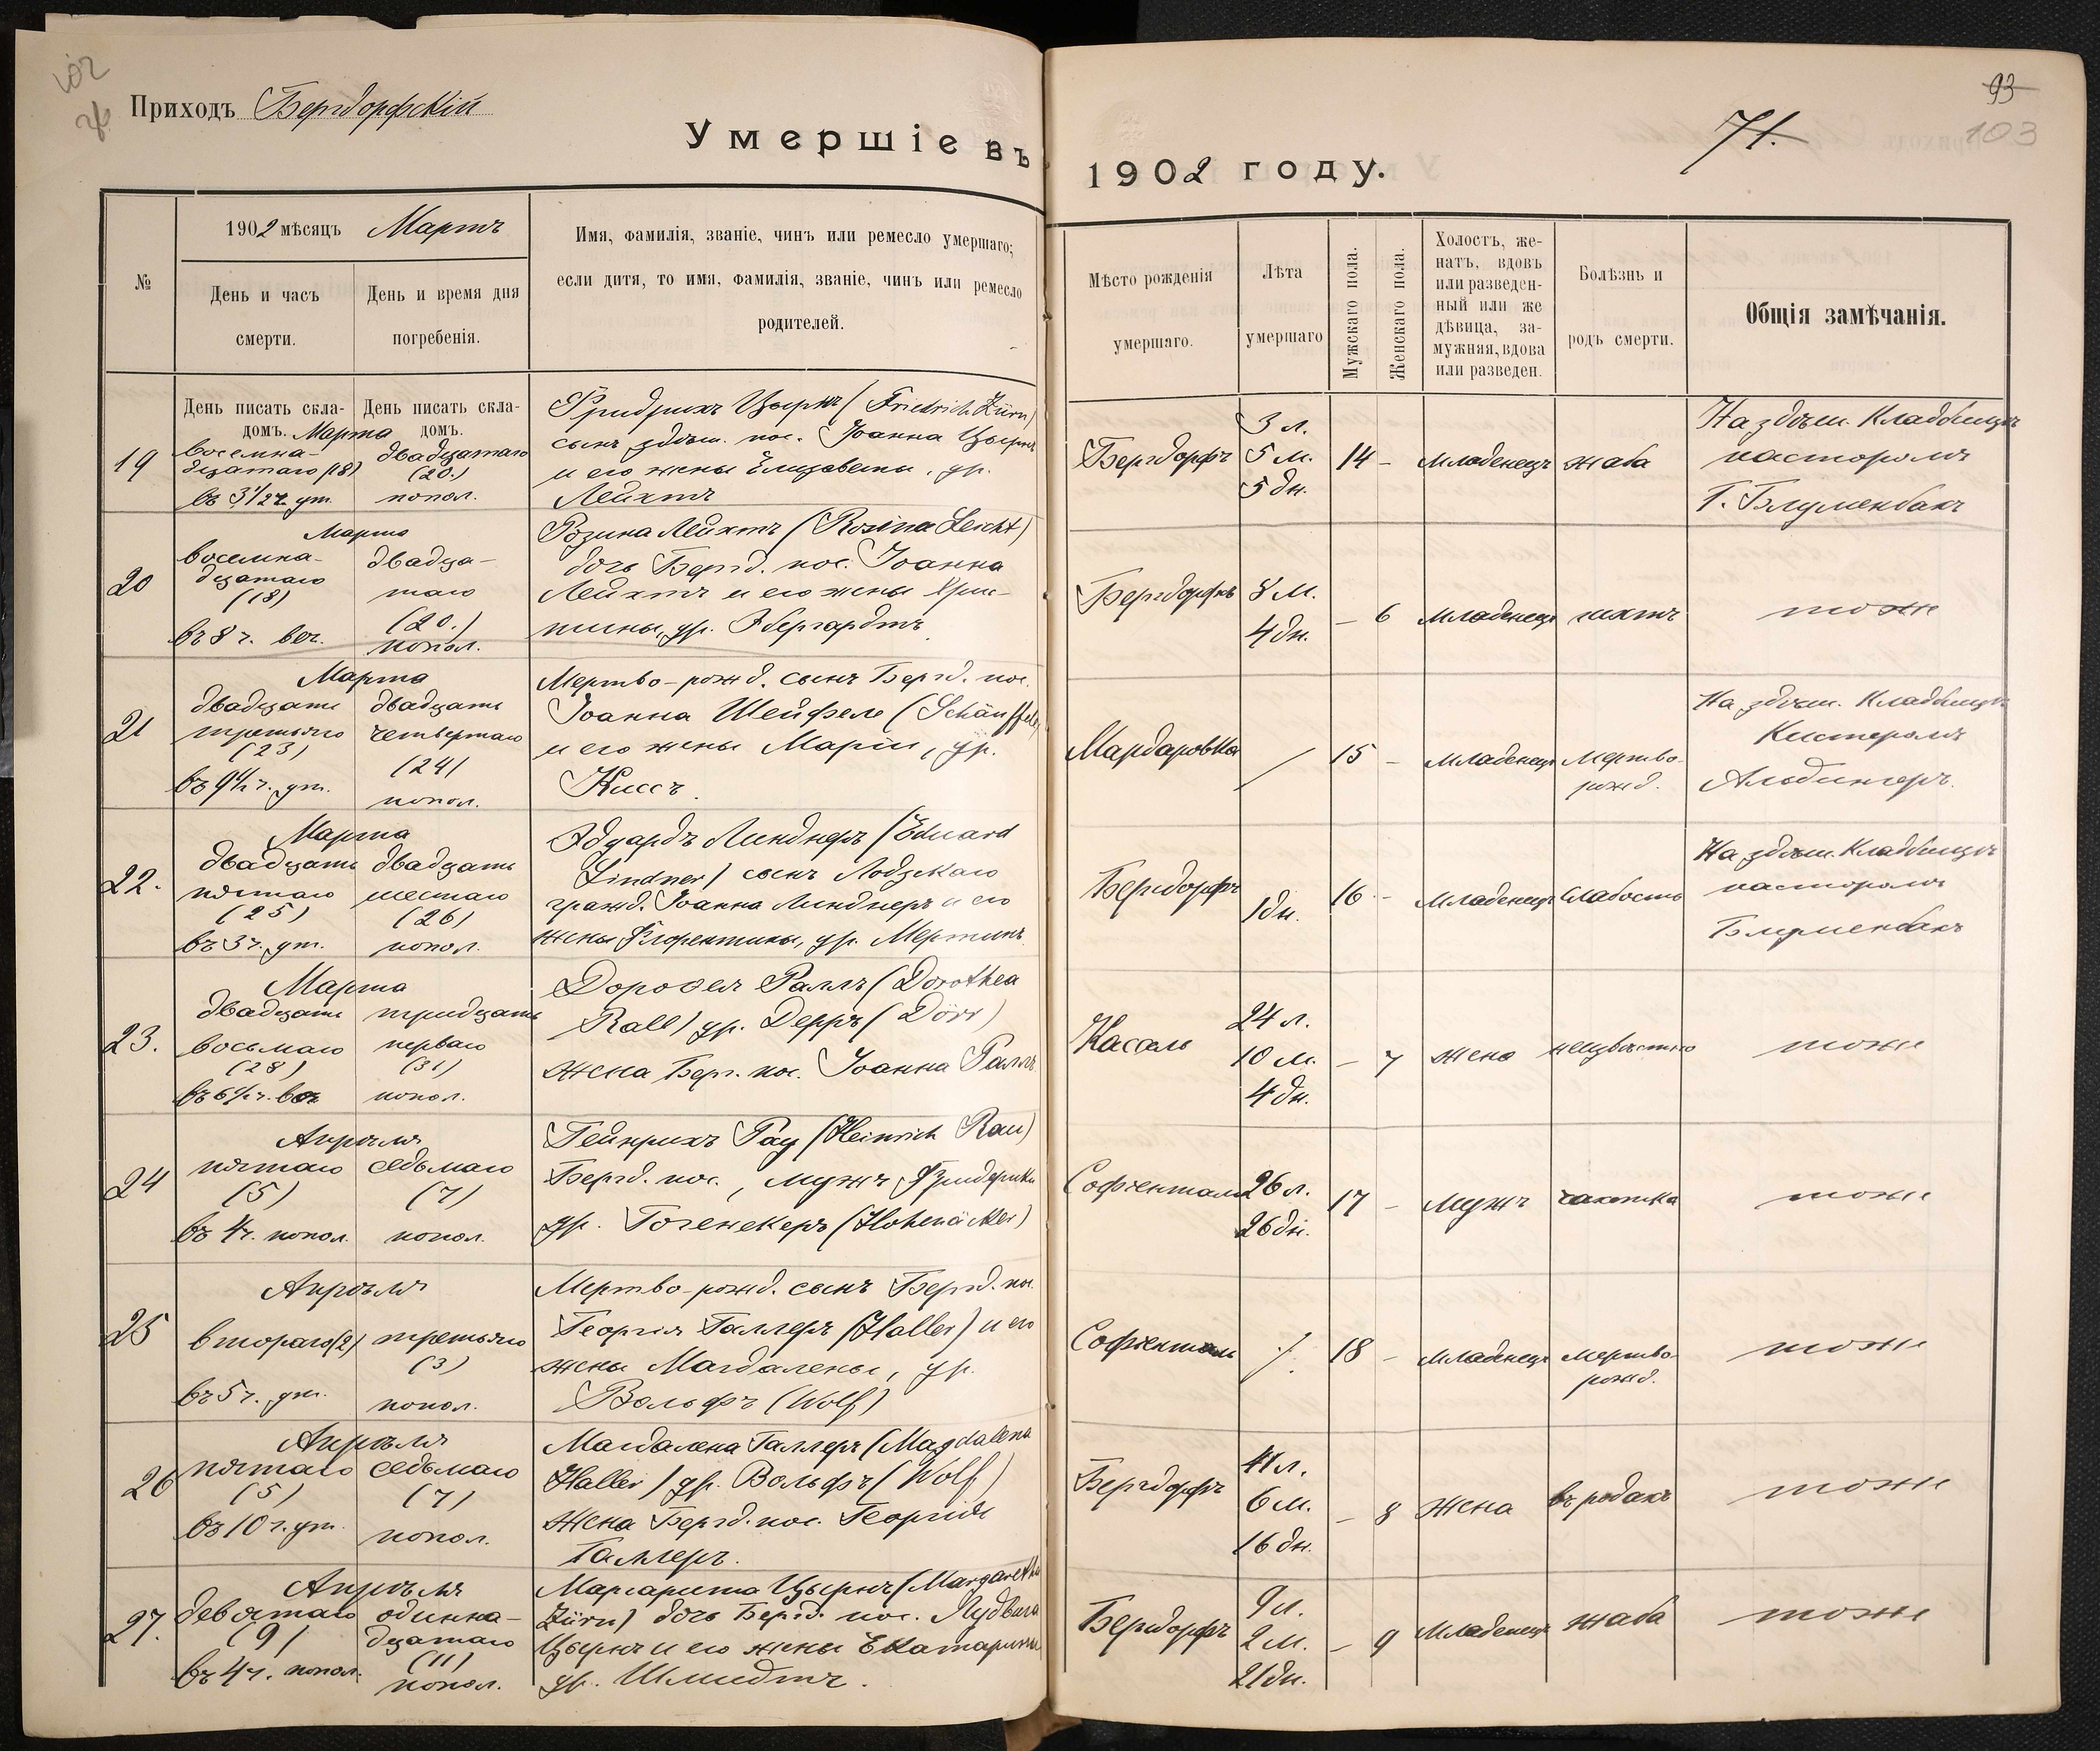 Приходъ Бергдорфскій
Умершіе въ
1902 году.
71.
93
103
№
1902 мѣсяцъ Мартъ
День и часъ
смерти.
День и время дня
погребенія.
Имя, фамилія, званіе, чинъ или ремесло умершаго;
если дитя, то имя, фамилія, званіе, чинъ или ремесло
родителей.
Мѣсто рожденія
умершаго.
Лѣта
умершаго
Мужскаго пола.
Женскаго пола.
Холостъ, же-
натъ, вдовъ
или разведен-
ный или же
дѣвица, за-
мужняя, вдова
или разведен.
Болѣзнь и
родъ смерти.
Общія замѣчанія.
День писать скла-
домъ.
День писать скла-
домъ.
19
Марта
восемна-
дцатаго (18)
въ 3 1/2 ч. ут.
двадцатаго
(20.)
попол.
Фридрихъ Цырнъ (Friedrich Zürn)
сынъ здѣш. пос. Іоанна Цырнъ
и его жены Елизаветы, ур.
Лейхтъ
Бергдорфъ
3 л.
5 м.
5 дн.
14 -
Младенецъ
жаба
На здѣш. Кладбищѣ
пасторомъ
Г. Блуменбахъ
20
Марта
восемна-
дцатаго
(18)
въ 8 ч. веч.
двадца-
таго
(20.)
попол.
Розина Лейхтъ (Rosina Leicht)
дочь Бергд. пос. Іоанна
Лейхтъ и его жены Крис-
тины, ур. Эбергардтъ
Бергдорфъ
8 м.
4 дн.
- 6
Младенецъ
тоже
21
Марта
двадцать
третьяго
(23)
въ 9 1/2 ч. ут.
двадцать
четвертаго
(24)
попол.
Мертво-рожд. сынъ Бергд. пос.
Іоанна Шейфеле (Schäuffele)
и его жены Маріи, ур.
Киссъ
Мардаровка
/
15 -
Младенецъ
Мертво-
рожд.
На здѣш. Кладбищѣ
Кистеромъ
Альдингеръ.
22.
Марта
двадцать
пятаго
(25)
въ 3 ч. ут.
двадцать
шестаго
(26)
попол.
Эдуардъ Линднеръ (Eduard
Lindner) сынъ Лодзскаго
гражд. Іоанна Линднеръ и его
жены Флорентины, ур. Мертинъ
Бергдорфъ
1 дн.
16 -
Младенецъ
слабость
На здѣш. Кладбищѣ
пасторомъ
Блуменбахъ
23.
Марта
двадцать
восьмаго
(28)
въ 6 1/2 ч. веч
тридцать
перваго
(31)
попол.
Доротея Раллъ (Dorothea
Rall) ур. Дерръ (Dörr)
жена Берг. пос. Іоанна Раллъ
Касаль
24 л.
10 м.
4 дн.
- 7
жена
неизвѣстно
тоже
24
Апрѣля
пятаго
(5)
въ 4 ч. попол.
седьмаго
(7)
попол.
Гейнрихъ Рау (Heinrich Rau)
Бергд. пос., мужъ Фридерики
ур. Гогенекеръ (Hohenäcker)
Софіенталь
26 л.
26 дн.
17 -
Мужъ
чахотка
тоже
25
Апрѣля
втораго (2)
въ 5 ч. ут.
третьяго
(3)
попол.
Мертво-рожд. сынъ Бергд. пос.
Георгія Галлеръ (Haller) и его
жены Магдалены, ур.
Вольфъ (Wolf)
Софіенталь
/
18 -
Младенецъ
Мертво-
рожд.
тоже
26
Апрѣля
пятаго
(5)
въ 10 ч. ут.
седьмаго
(7)
попол.
Магдалена Галлеръ (Magdalena
Haller) ур. Вольфъ (Wolf)
жена Бергд. пос. Георгія
Галлеръ.
Бергдорфъ
41 л.
6 м.
16 дн.
- 8
Жена
въ родахъ
тоже
27.
Апрѣля
девятаго
(9)
въ 4 ч. попол.
одинна-
дцатаго
(11)
попол.
Маргарита Цырнъ (Margaretha
Zürn) дочь Бергд. пос. Лудвига
Цырнъ и его жены Екатарины
ур. Шмидтъ.
Бергдорфъ
9 л.
2 м.
21 дн.
- 9
Младенецъ
жаба
тоже